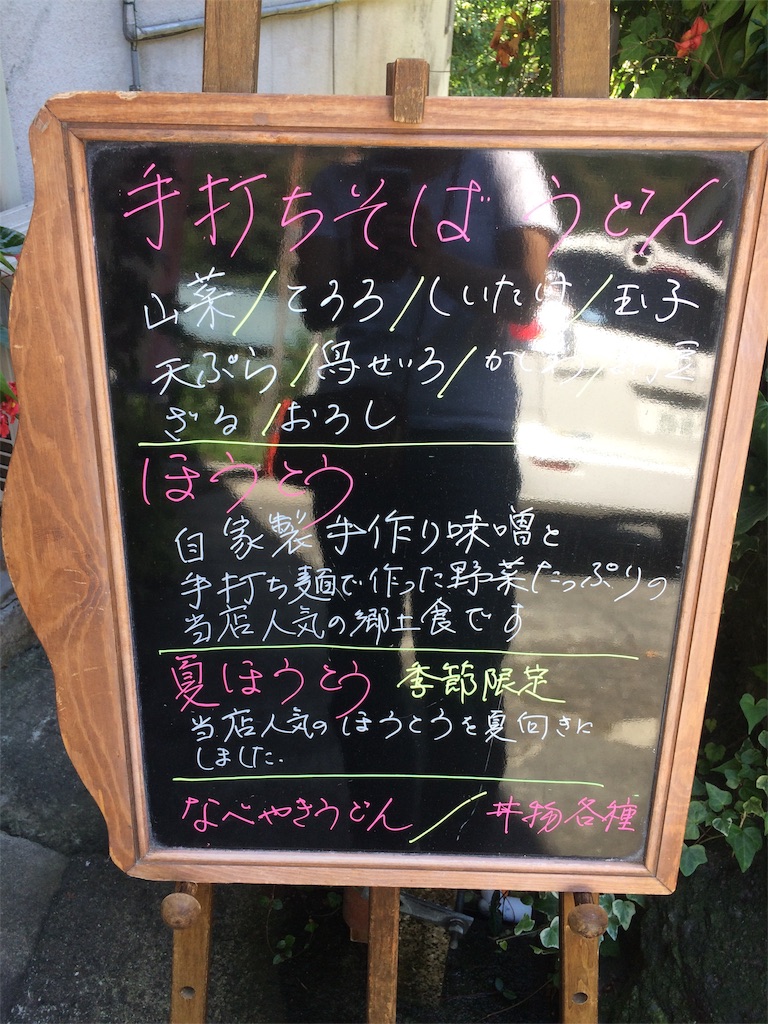 手打ちそば うどん
山菜/とろろ/しいたけ/玉子
天ぷら/鴨せいろ/かしわ/
ざる/おろし
ほうとう
自家製手作り味噌と
手打ち麺で作った野菜たっぷりの
当店人気の郷土食です
夏ほうとう 季節限定
当店人気のほうとうを夏向きに
しました.
なべやきうどん/丼物各種